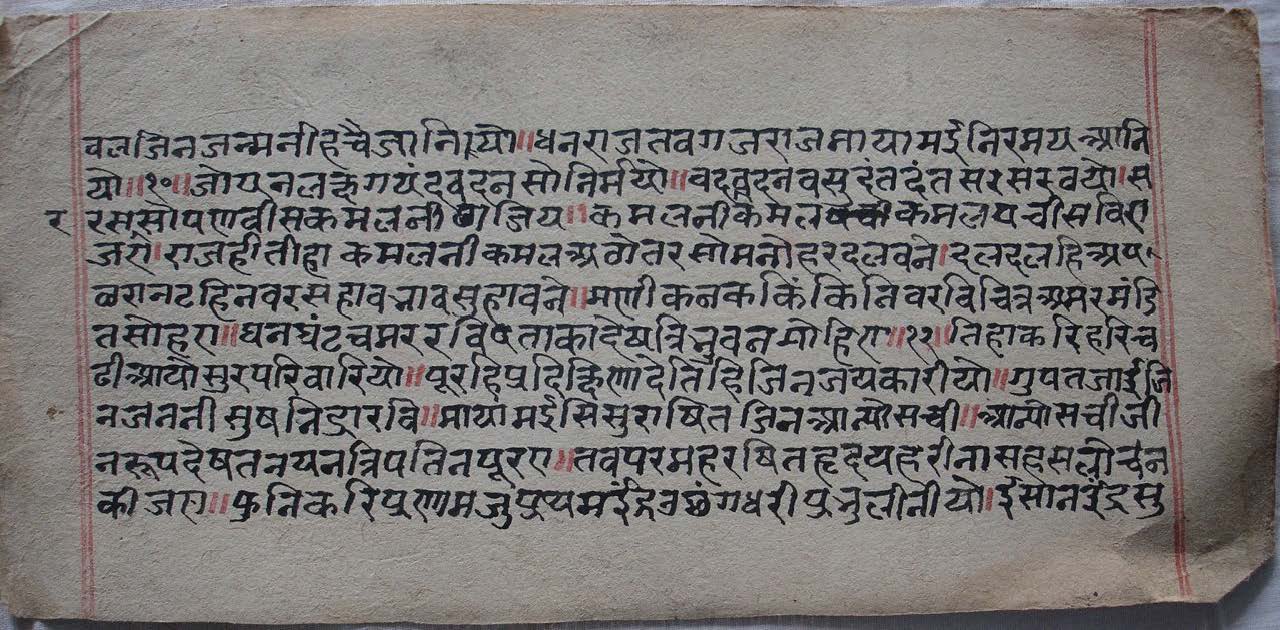 वल जिन जन्म नीहचै जानियो॥ धनराज तव गजराज मायामई निरमय आनि
यो॥१०॥ जोयन लछ गयंद वदन सो निर्मयो॥ वद वदन वसु दंत दंत सर सरवयो। स
र रस सो पणवीस कमलनी छाजिय॥ कमलनी कमल कमल पचीस विरा
जरो। राजही तीहा कमलनी कमल अठोतर सो मनोहर दल वने। दल दलहि अप
छरा नटहि नवरस हाव भाव सुहावने॥ मणी कनक किंकिनि वर विचित्र अमर मंडि
त सोहरा॥ घन घंट चमर र विषताका देष त्रिभुवन मोहिरा॥११॥ तिहा करि हरि च
ढी आयो सुर परिवारियो॥ पूरहि प्रदिछिणा देति हि जिन जयकारीयो॥ गुपत जाई जि
न जननी सुष निद्रा रवि॥ मायामई सिसु राषित जिन आन्यो सची॥ आन्यो सची जी
न रूप देषत नयन त्रिपति न पूरए॥ तव परम हरषित हृदय हरीना सहस लोचन
की जरा॥ फुनि करि प्रणम जु प्रथम ईंद्र उछंग धरी प्रभु लीनीयो। ईसान इंद्र सु